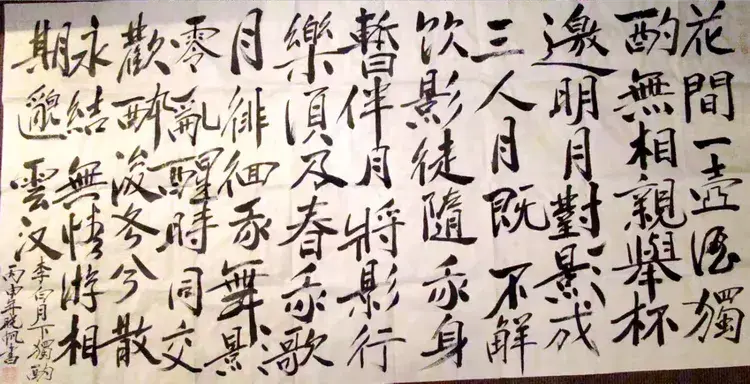 花間一壺酒獨
酌無相親舉杯
邀明月對影成
三人月既不解
飲影徒隨我身
暫伴月將影行
樂須及春我歌
月徘徊我舞影
零亂醒時同交
歡醉後各分散
永結無情游相
期邈雲汉
李白月下獨酌
丙申年晓帆書